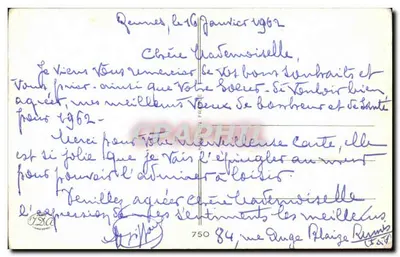 Rennes, le 16 Janvier 1962
Chère Mademoiselle,
Je viens vous remercier de vos bons souhaits et
vous prier, ainsi que votre soeur, de vouloir bien
agréer, mes meilleurs voeux de bonheur et de santé
pour 1962-
Merci pour votre merveilleuse carte, elle
est si jolie que je vais l'épingler au mur
pour pouvoir l'admirer à loisir
Veuillez agréer Chère Mademoiselle
l'expression de mes sentiments les meilleurs
750
84, rue Ange Blaize Rennes